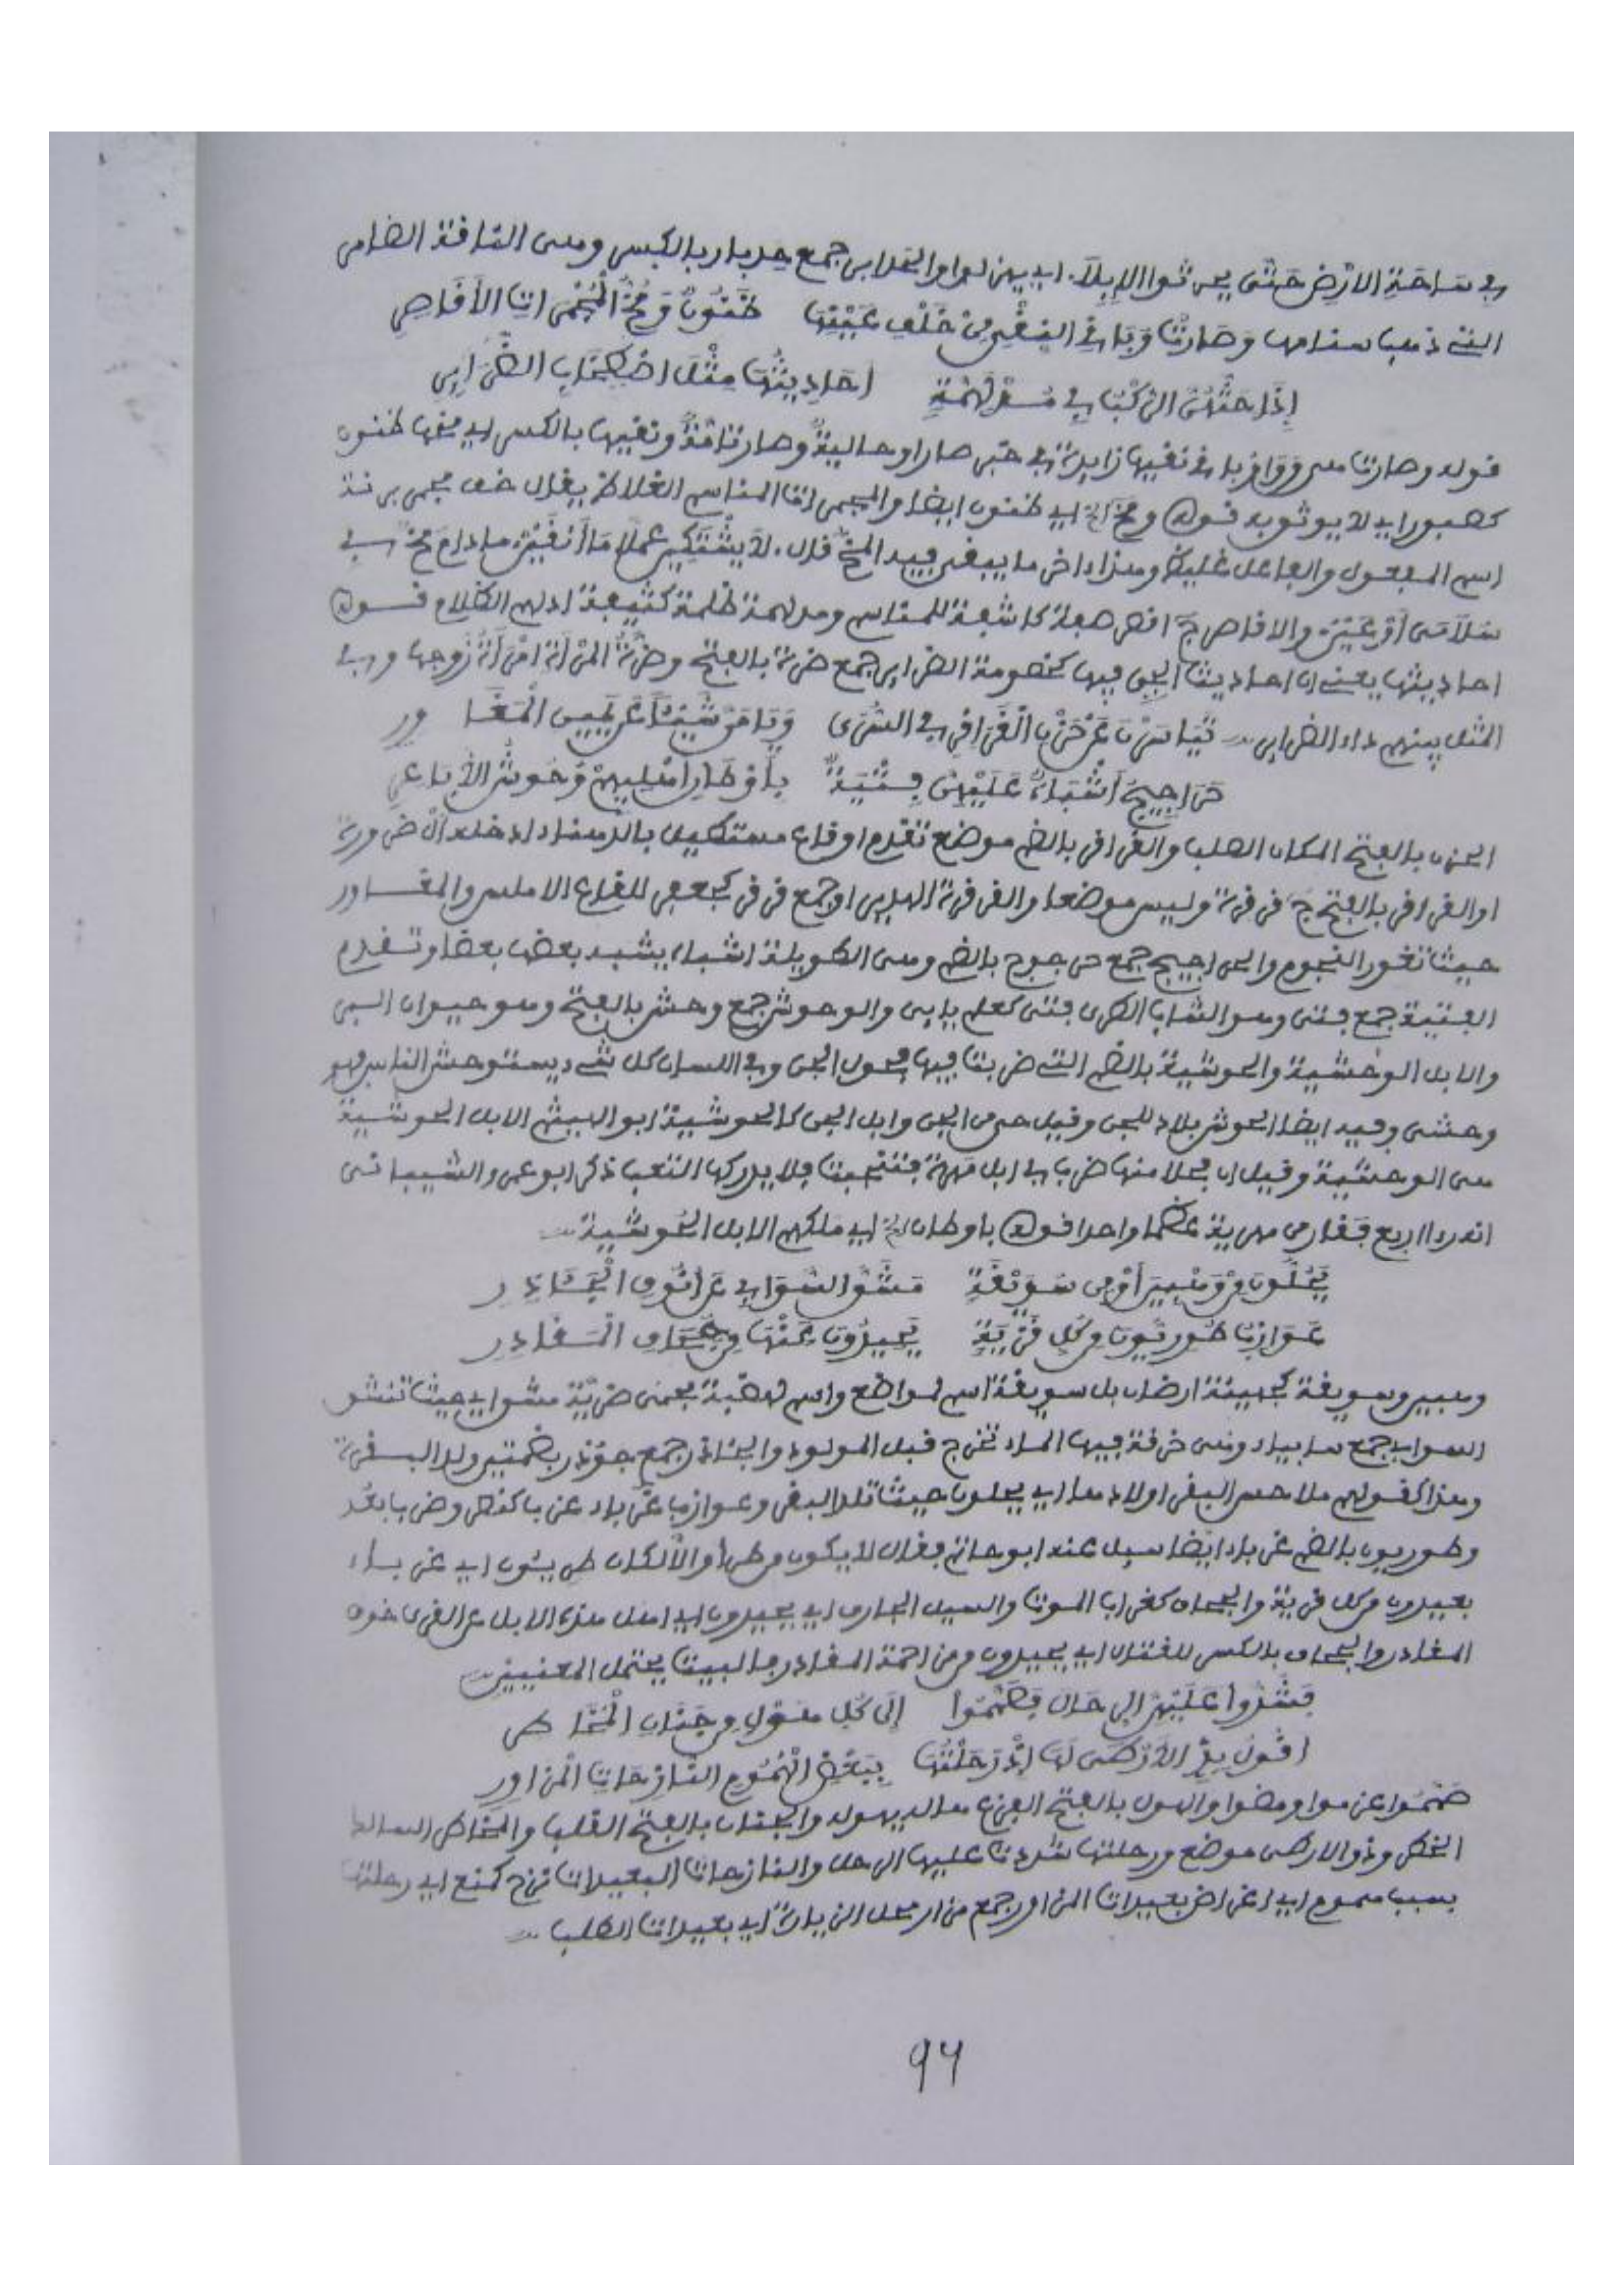 في ساحة الارض حتى يحرثوا الابلا. اي يهزلوا والحدابير جمع حدبار بالكسر وهى الناقة الضامر
التي ذهب سنامها وصارت وباقي النقي من خلف عينها ظنون ومخ المجمرات الاقاصر
إذا حثهن الركب في مدلهمة احاديثها مثل اصطخاب الضراير
قوله وصارت هي وباقي نقيها زايدة في خبر صار او حالية وصار تامة ونقيها بالكسر اي مخها ظنون
كصبور اي لا يوثق به قوله ومخ الخ اي ظنون ايضا والمجمرات المناسم الغلاظ يقال خف مجمر برنة
اسم المفعول والفاعل غليظ وهذا اخر ما يبقى فيه المخ قال. لا يشتكين عملا ما أنقين مادام مخ في
سلامى أو عين. والاقاصر ج اقصر صفة كاشفة للمناسم ومدلهمة ظلمة كثيفة ادلهم الظلام قوله
احاديثها يعني ان احاديث الجن فيها كخصومة الضراير جمع ضرة بالفتح وضرة المرأة امرأة زوجها وفي
المثل بينهم داء الضراير تياسرن عن حزن القراقر في السرى ويامن شيئا عن يمين المغا ور
حراجيج أشباه عليهن فتية بأوطان اهليهم وحوش الأباعر
الحزن بالفتح المكان الصلب والقراقر بالضم موضع تقدم او قاع مستطيل بالدهناء ادخله ال ضرورة
او القراقر بالفتح ج قرقرة وليس موضعا والقرقرة الهدير او جمع قرقر كجعفر للقاع الاملس والمغـاور
حيث تغور النجوم والحراجيج جمع حرجوج بالضم وهى الطويلة اشباه يشبه بعض بعضا وتقدم
الفتية جمع فتى وهو الشاب الطري فتى كعلم يابى والوحوش جمع وحش بالفتح وهو حيوان البر
والابل الوحشية والحوشية بالضم التي ضربت فيها فحول الجن وفي اللسان كل شيء يستوحش الناس فهو
وحشى وفيه ايضا الحوش بلاد للجن وقيل حى من الجن وابل الجن كالحوشية ابو الهيثم الابل الحوشية
هى الوحشية وقيل ان فحلا منها ضرب في ابل مهرة فنتجت فلا يدركها التعب ذكر ابو عمرو الشيبانى
انه را اربع فقار من مهرية عظما واحدا قوله باوطان الخ اي ملكهم الابل الحوشية
يحلون من وهبين أو من سويقة مشق السوابي عن انوف الجآذر
عوازب طوريون من كل قرية يحيدون عنها من جحاف المقادر
وهبين وسويقة كجهينة ارضان بل سويقة اسم لمواضع واسم لهضبة بحمى ضرية مشق اي حيث تنشق
السوابي جمع سابياء وهى خرقة فيها الماء تخرج قبل المولود والجئاذر جمع جؤذر بضمتين ولد البقرة
وهذا كقولهم ملاحس البقر اولادها اي يحلون حيث تلد البقر وعوازب عزباء عزب كنصر وضرب ابعد
وطوريون بالضم غرباء ايضا سيل عنه ابو حاتم فقال لا يكون من طرأ والا لكان طريئون اي غرباء
بعيدون من كل قرية والجحاف كغراب الموت والسيل الجارف اي يحيدون اي اهل هذه الابل عن القرى خوف
المقادر والجحاف بالكسر للقتال اي يحيدون من مزاحمة المقادر فالبيت يحتمل المعنيين
فشدوا عليهن الرحال فصمموا إلى كل هول من جنان المخاطر
اقول بذي الارطى لها إذ رحلتها ببعض الهموم النازحات المزاور
صمموا عزموا ومضوا والهول بالفتح الفزع هاله يهوله والجنان بالفتح القلب والمخاطر السالك
الخطر وذو الارطى موضع ورحلتها شددت عليها الرحل والنازحات البعيدات نزح كمنع اي رحلتها
بسبب هموم اي اغراض بعيدات المزاور جمع مزار محل الزيارة اي بعيدات الطلب
٩٦